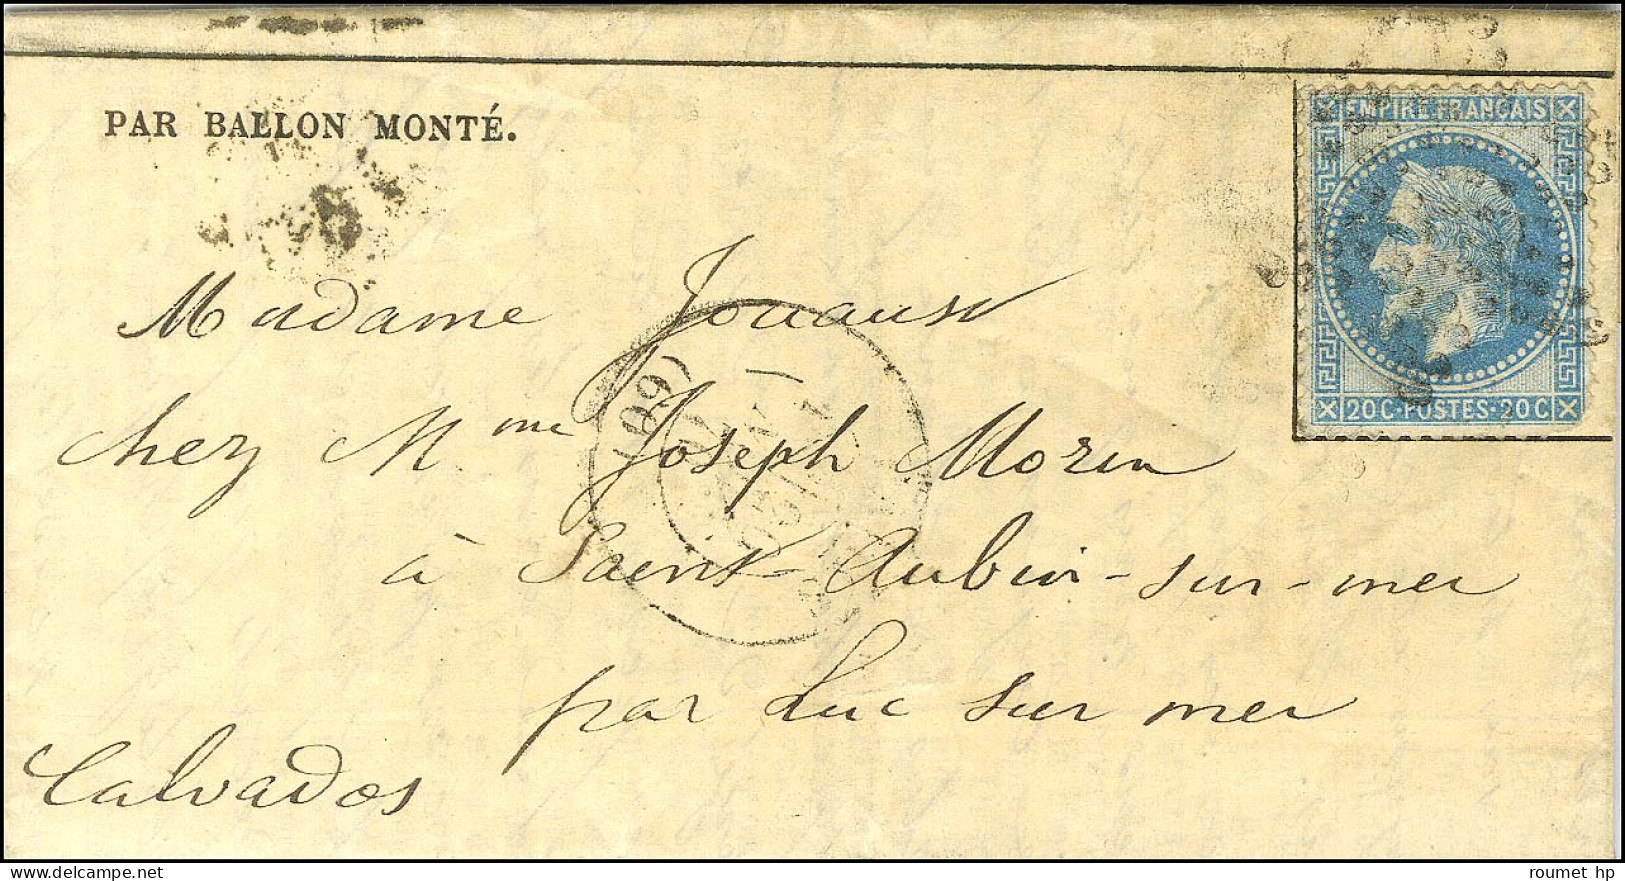 PAR BALLON MONTÉ.
EMPIRE FRANCAIS
20C·POSTES·20C
Madame Jouaust
chez Mme Joseph Morin
à Saint-Aubin-sur-mer
par Luc sur mer
Calvados
(60)
roumet hp